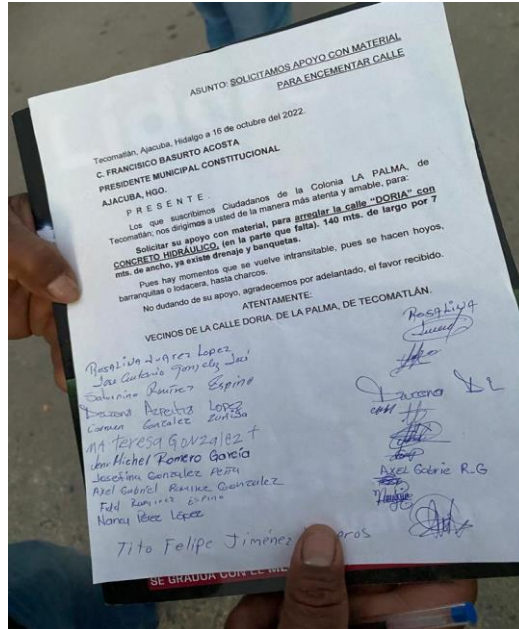 ASUNTO: SOLICITAMOS APOYO CON MATERIAL
PARA ENCEMENTAR CALLE
Tecomatlán, Ajacuba, Hidalgo a 16 de octubre del 2022.
C. FRANCISICO BASURTO ACOSTA
PRESIDENTE MUNICIPAL CONSTITUCIONAL
AJACUBA, HGO.
P R E S E N T E .
Los que suscribimos Ciudadanos de la Colonia LA PALMA, de
Tecomatlán; nos dirigimos a usted de la manera más atenta y amable, para:
Solicitar su apoyo con material, para arreglar la calle "DORIA" con
CONCRETO HIDRÁULICO, (en la parte que falta). 140 mts. de largo por 7
mts. de ancho, ya existe drenaje y banquetas.
Pues hay momentos que se vuelve intransitable, pues se hacen hoyos,
barranquitas o lodacera, hasta charcos.
No dudando de su apoyo, agradecemos por adelantado, el favor recibido.
ATENTAMENTE:
VECINOS DE LA CALLE DORIA. DE LA PALMA, DE TECOMATLÁN.
Rosalina Lopez Rosalina
Jose Antonio Gonzalez
Ramirez Espino
Lopez
Carmen Gonzalez
MA teresa GONZALEZ
Michel Romero García
Josefina Gonzalez Peña
Axel Gabriel Ramirez Gonzalez Axel Gabrie R.G
Ramirez Espino
Nancy Pérez López
Tito Felipe Jiménez
SE GRADÚA CON EL